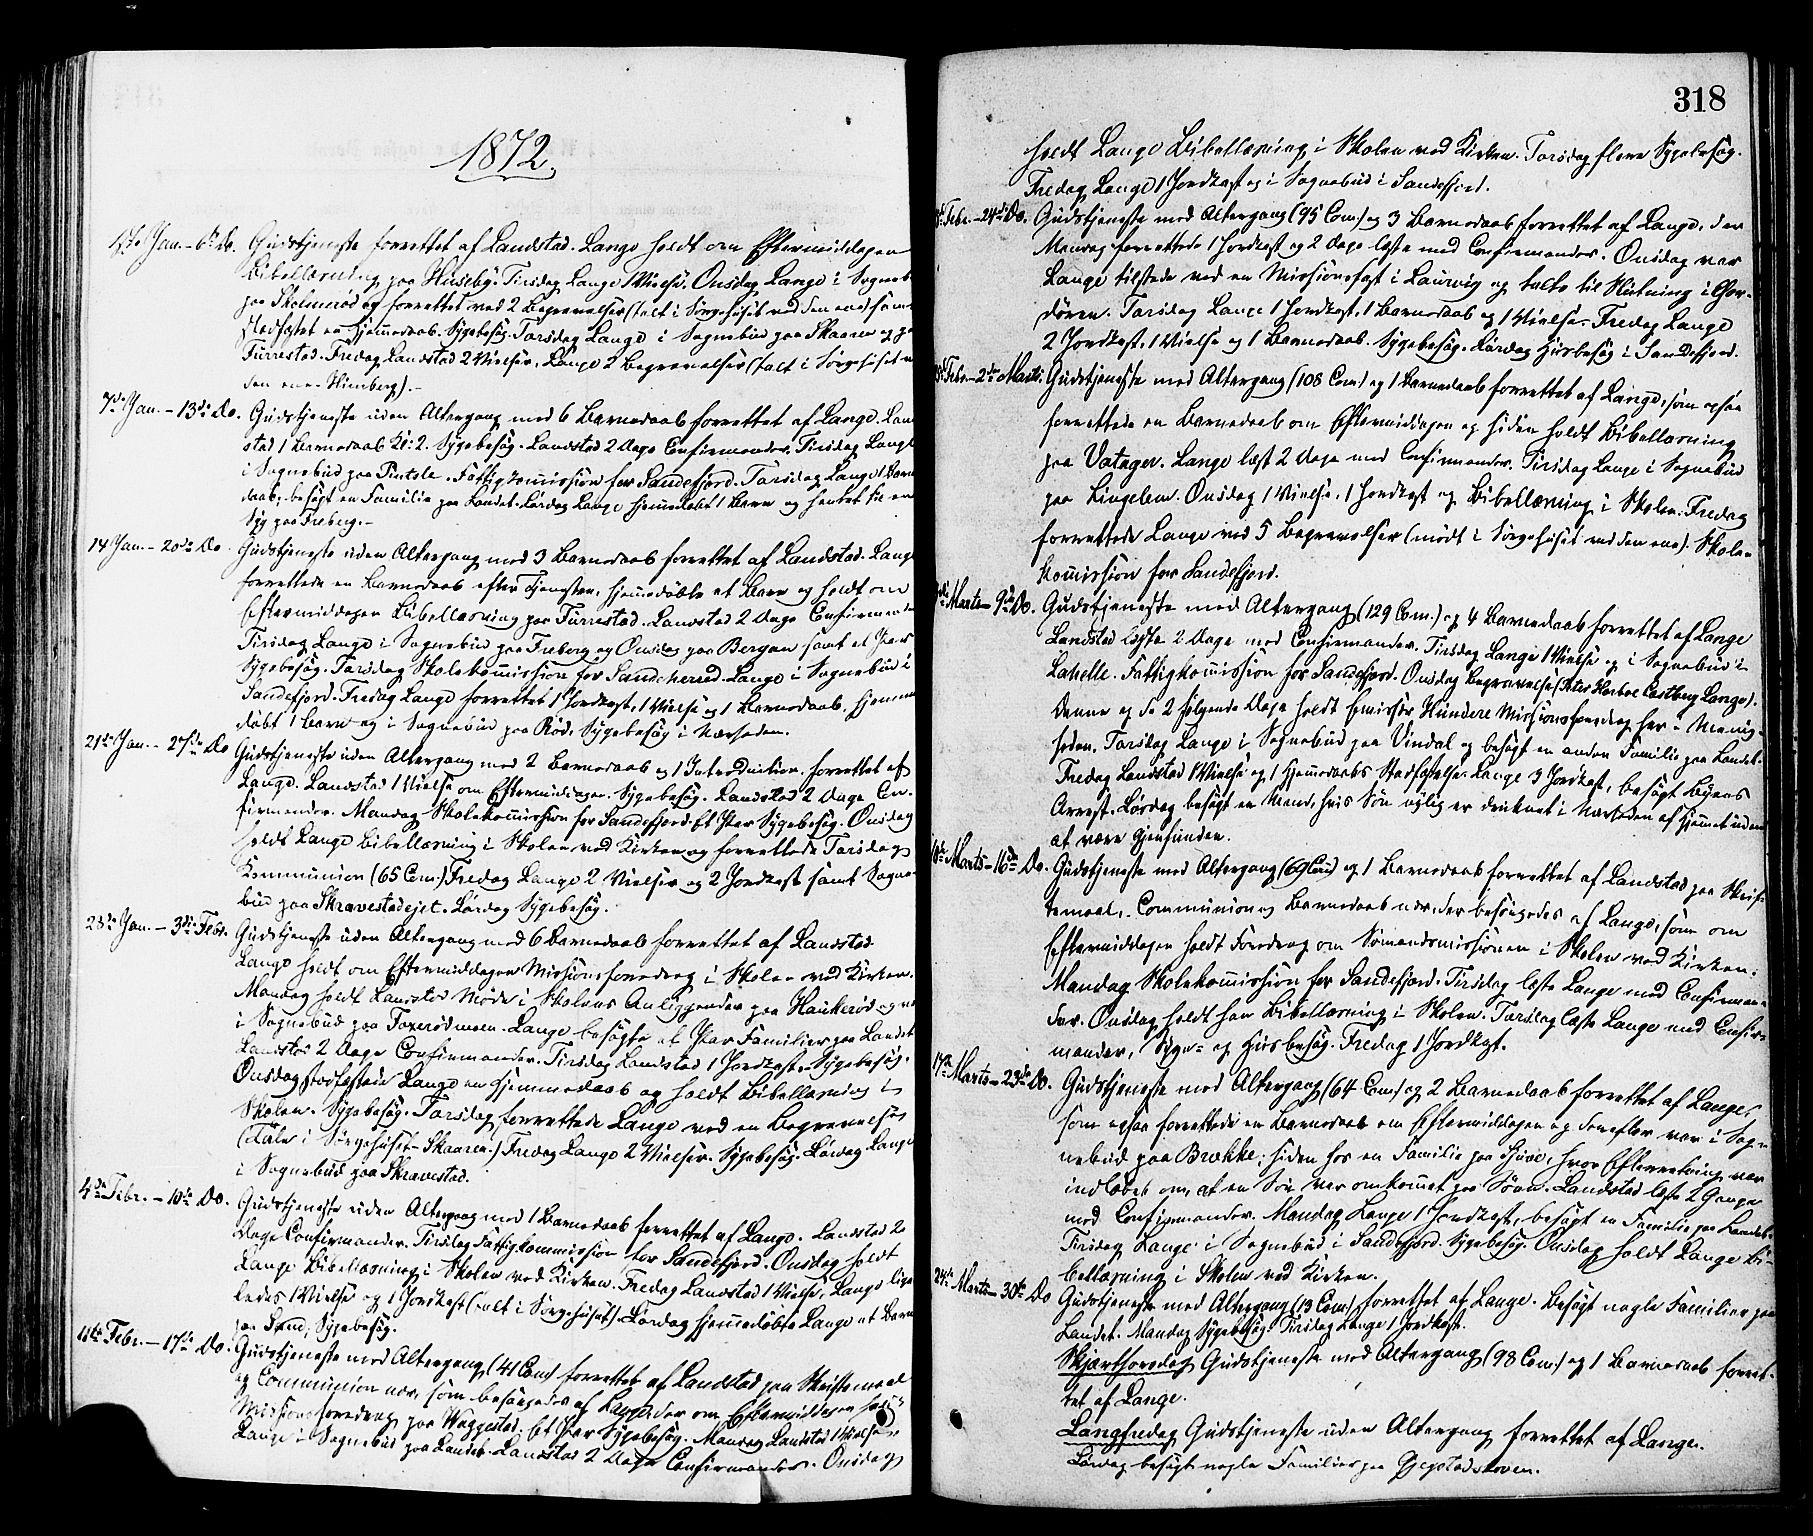 1872.
1ste Jan. - 6te Do. Gudstjeneste forrettet af Landstad. Lange holdt om Eftermiddagen
Bibellæsning paa Huseby. Tirsdag Lange 1 Vielse. Onsdag Lange i Sogneb.
paa Skolmrød og forrettet ved 2 Begravelser (talt i Sørgehuset ved den ene) samt
stadfæstet en Hjemmedaab. Sygebesøg. Torsdag Lange i Sognebud paa Skaaen og paa
Furrestad. Fredag Landstad 2 Vielser, Lange 2 Begravelser (talt i Sørgehuset ved
den ene - Himberg). -
7de Jan. - 13de Do. Gudstjeneste uden Altergang med 6 Barnedaab forrettet af Lange. Land-
stad 1 Barnedaab Kl: 2. Sygebesøg. Landstad 2 Dage Confirmander. Tirsdag Lange
i Sognebud paa Pindsle. Fattigkommission for Sandefjord. Torsdag Lange 1 Barne-
daab, besøgt en Familie paa Landet. Lørdag Lange hjemmedøbt 1 Barn og hentet til en
Syg paa Freberg. -
14 Jan. - 20de Do. Gudstjeneste uden Altergang med 3 Barnedaab forrettet af Landstad. Lange
forrettede en Barnedaab efter Tjenesten, hjemmedøbte et Barn og holdt om
Eftermiddagen Bibellæsning paa Furrestad. Landstad 2 Dage Confirmander
Tirsdag Lange i Sognebud paa Freberg og Onsdag paa Bergan samt et Par
Sygebesøg. Torsdag Skolekommission for Sandeherred. Lange i Sognebud i
Sandefjord. Fredag Lange forrettet 1 Jordkast, 1 Vielse og 1 Barnedaab, hjemme-
døbt 1 Barn og i Sognebud paa Rød. Sygebesøg i Nærheden.
21de Jan. - 27de Do Gudstjeneste uden Altergang med 2 Barnedaab og 1 Introduction forrettet af
Lange. Landstad 1 Vielse om Eftermiddagen. Sygebesøg. Landstad 2 Dage Con-
firmander. Mandag Skolekommission for Sandefjord. Et Par Sygebesøg. Onsdag
holdt Lange Bibellæsning i Skolen ved Kirken og forrettede Torsdag
Kommunion (65 Com.) Fredag Lange 2 Vielser og 2 Jordkast samt Sogne-
bud paa Skravestadejet. Lørdag Sygebesøg.
28de Jan. - 3die Febr. Gudstjeneste uden Altergang med 6 Barnedaab forrettet af Landstad
Lange holdt om Eftermiddagen Missionsforedrag i Skolen ved Kirken.
Mandag holdt Landstad Møde i Skolens Anliggender paa Haukerød og var
i Sognebud paa Toxerødmoen. Lange besøgte et Par Familier paa Landet
Landstad 2 Dage Confirmander. Tirsdag Landstad 1 Jordkast. Sygebesøg.
Onsdag stadfæstede Lange en Hjemmedaab og holdt Bibellæsning i
Skolen. Sygebesøg. Torsdag forrettede Lange ved en Begravelse
(Tale i Sørgehuset - Skaaren.) Fredag Lange 2 Vielser. Sygebesøg. Lørdag Lange
i Sognebud paa Skravestad.
4de Febr. - 10de Do. Gudstjeneste uden Altergang med 1 Barnedaab forrettet af Lange. Landstad 2
Dage Confirmander. Tirsdag Fattigkommission for Sandefjord. Onsdag holdt
Lange Bibellæsning i Skolen ved Kirken. Fredag Landstad 1 Vielse, Lange lige-
ledes 1 Vielse og 1 Jordkast (talt i Sørgehuset). Lørdag hjemmedøbte Lange et Barn
paa Sand, Sygebesøg.
11te Febr. - 17de Do. Gudstjeneste med Altergang (41 Com) forrettet af Landstad paa Skriftemaal
og Communion nær, som besørgedes af Lange, der om Eftermiddagen holdt
Missionsforedrag paa Waggestad, et Par Sygebesøg. Mandag Landstad 1 Vielse,
Lange i Sognebud paa Landet. Landstad 2 Dage Confirmander. Onsdag
318
holdt Lange Bibellæsning i Skolen ved Kirken. Torsdag flere Sygebesøg.
Fredag Lange 1 Jordkast og i Sognebud i Sandefjord.
Febr. - 24de Do. Gudstjeneste med Altergang (95 Com) og 3 Barnedaab forrettet af Lange, der
Mandag forrettede 1 Jordkast og 2 Dage læste med Confirmander. Onsdag var
Lange tilstede ved en Missionsfest i Laurvig og talte til Slutning i Chor-
døren. Torsdag Lange 1 Jordkast, 1 Barnedaab og 1 Vielse. Fredag Lange
2 Jordkast, 1 Vielse og 1 Barnedaab. Sygebesøg. Lørdag Husbesøg i Sandefjord.
Febr. - 2de Marts. Gudstjeneste med Altergang (108 Com) og 1 Barnedaab forrettet af Lange, som ogsaa
forrettede en Barnedaab om Eftermiddagen og siden holdt Bibellæsning
paa Vatager. Lange læst 2 Dage med Confirmander. Tirsdag Lange i Sognebud
paa Lingelem. Onsdag 1 Vielse, 1 Jordkast og Bibellæsning i Skolen. Fredag
forrettede Lange ved 5 Begravelser (mødt i Sørgehuset ved den ene). Skole-
kommission for Sandefjord.
Marts - 9de Do. Gudstjeneste med Altergang (129 Com.) og 4 Barnedaab forrettet af Lange
Landstad læste 2 Dage med Confirmander. Tirsdag Lange 1 Vielse og i Sognebud i
Lahelle. Fattigkommission for Sandefjord. Onsdag Begravelse (Peter Harboe Castberg Lange).
Denne og de 2 følgende Dage holdt Emissær Hundere Missionsforedrag her i Menig-
heden. Torsdag Lange i Sognebud paa Vindal og besøgt en anden Familie paa Landet.
Fredag Landstad 1 Vielse og 1 Hjemmedaabs Stadfæstelse. Lange 3 Jordkast, besøgt Byens
Arrest. Lørdag besøgt en Mand, hvis Søn nylig er druknet i Nærheden af Hjemmet uden
at være gjenfunden.
10de Marts - 16de Do. Gudstjeneste med Altergang (69 Com) og 1 Barnedaab forrettet af Landstad paa Skrif-
temaal, Communion og Barnedaab nær, der besørgedes af Lange, som om
Eftermiddagen holdt Foredrag om Sømandsmissionen i Skolen ved Kirken.
Mandag Skolekommission for Sandefjord. Tirsdag læste Lange med Confirman-
der. Onsdag holdt han Bibellæsning i Skolen. Torsdag læste Lange med Confir-
mander, Syge- og Husbesøg. Fredag 1 Jordkast.
17de Marts - 23de Do. Gudstjeneste med Altergang (64 Com) og 2 Barnedaab forrettet af Lange,
som ogsaa forrettede en Barnedaab om Eftermiddagen og derefter var i Sog-
nebud paa Brække, siden hos en Familie paa Hjuve, hvor Efterretning var
indløbet om, at en Søn var omkommet paa Søen. Landstad læste 2 Gange
med Confirmander. Mandag Lange 1 Jordkast, besøgt en Familie paa Landet.
Tirsdag Lange i Sognebud i Sandefjord. Sygebesøg. Onsdag holdt Lange Bi-
bellæsning i Skolen ved Kirken.
24de Marts - 30te Do Gudstjeneste med Altergang (13 Com) forrettet af Lange. Besøgt nogle Familier paa
Landet. Mandag Sygebesøg. Tirsdag Lange 1 Jordkast.
Skjærthorsdag Gudstjeneste med Altergang (98 Com.) og 1 Barnedaab forret-
tet af Lange.
Langfredag Gudstjeneste uden Altergang forrettet af Lange.
Lørdag besøgt nogle Familier paa Gjegstadskoven.